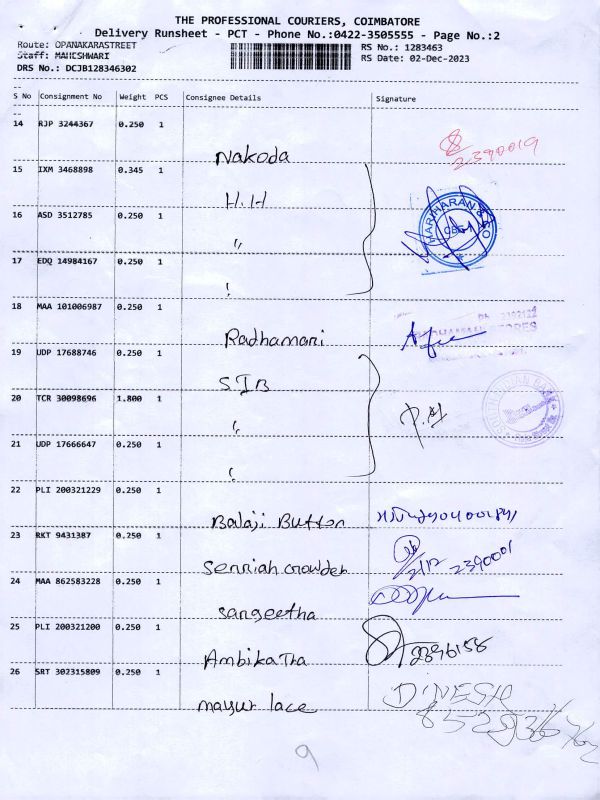 THE PROFESSIONAL COURIERS, COIMBATORE
Delivery Runsheet - PCT - Phone No.:0422-3505555 - Page No.:2
Route: OPANAKARASTREET
RS No.: 1283463
Staff: MAHESHWARI
RS Date: 02-Dec-2023
DRS No.: DCJB128346302
S No Consignment No Weight PCS Consignee Details Signature
14 RJP 3244367 0.250 1
Nakoda 2390019
15 IXM 3468898 0.345 1
H.H
16 ASD 3512785 0.250 1
"
HARIHARAN
17 EDQ 14984167 0.250 1
"
18 MAA 101006987 0.250 1
Radhamani
19 UDP 17688746 0.250 1
SIB
20 TCR 30098696 1.800 1
"
SOUTH INDIAN BANK
21 UDP 17666647 0.250 1
"
22 PLI 200321229 0.250 1
Balaji Button
23 RKT 9431387 0.250 1
Senniah crowder 2/12 2390001
24 MAA 862583228 0.250 1
Sangeetha
25 PLI 200321200 0.250 1
Ambika Tha 2396158
26 SRT 302315809 0.250 1
mayur lace DINESH
9